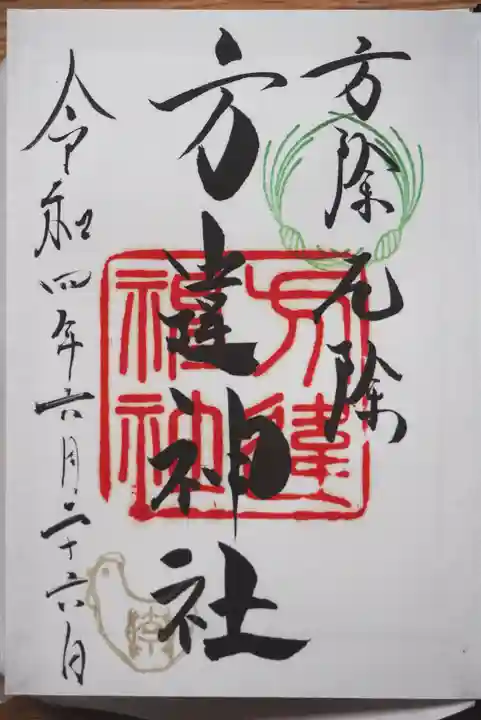 方除厄除
方違神社
令和四年六月二十六日
方違神社